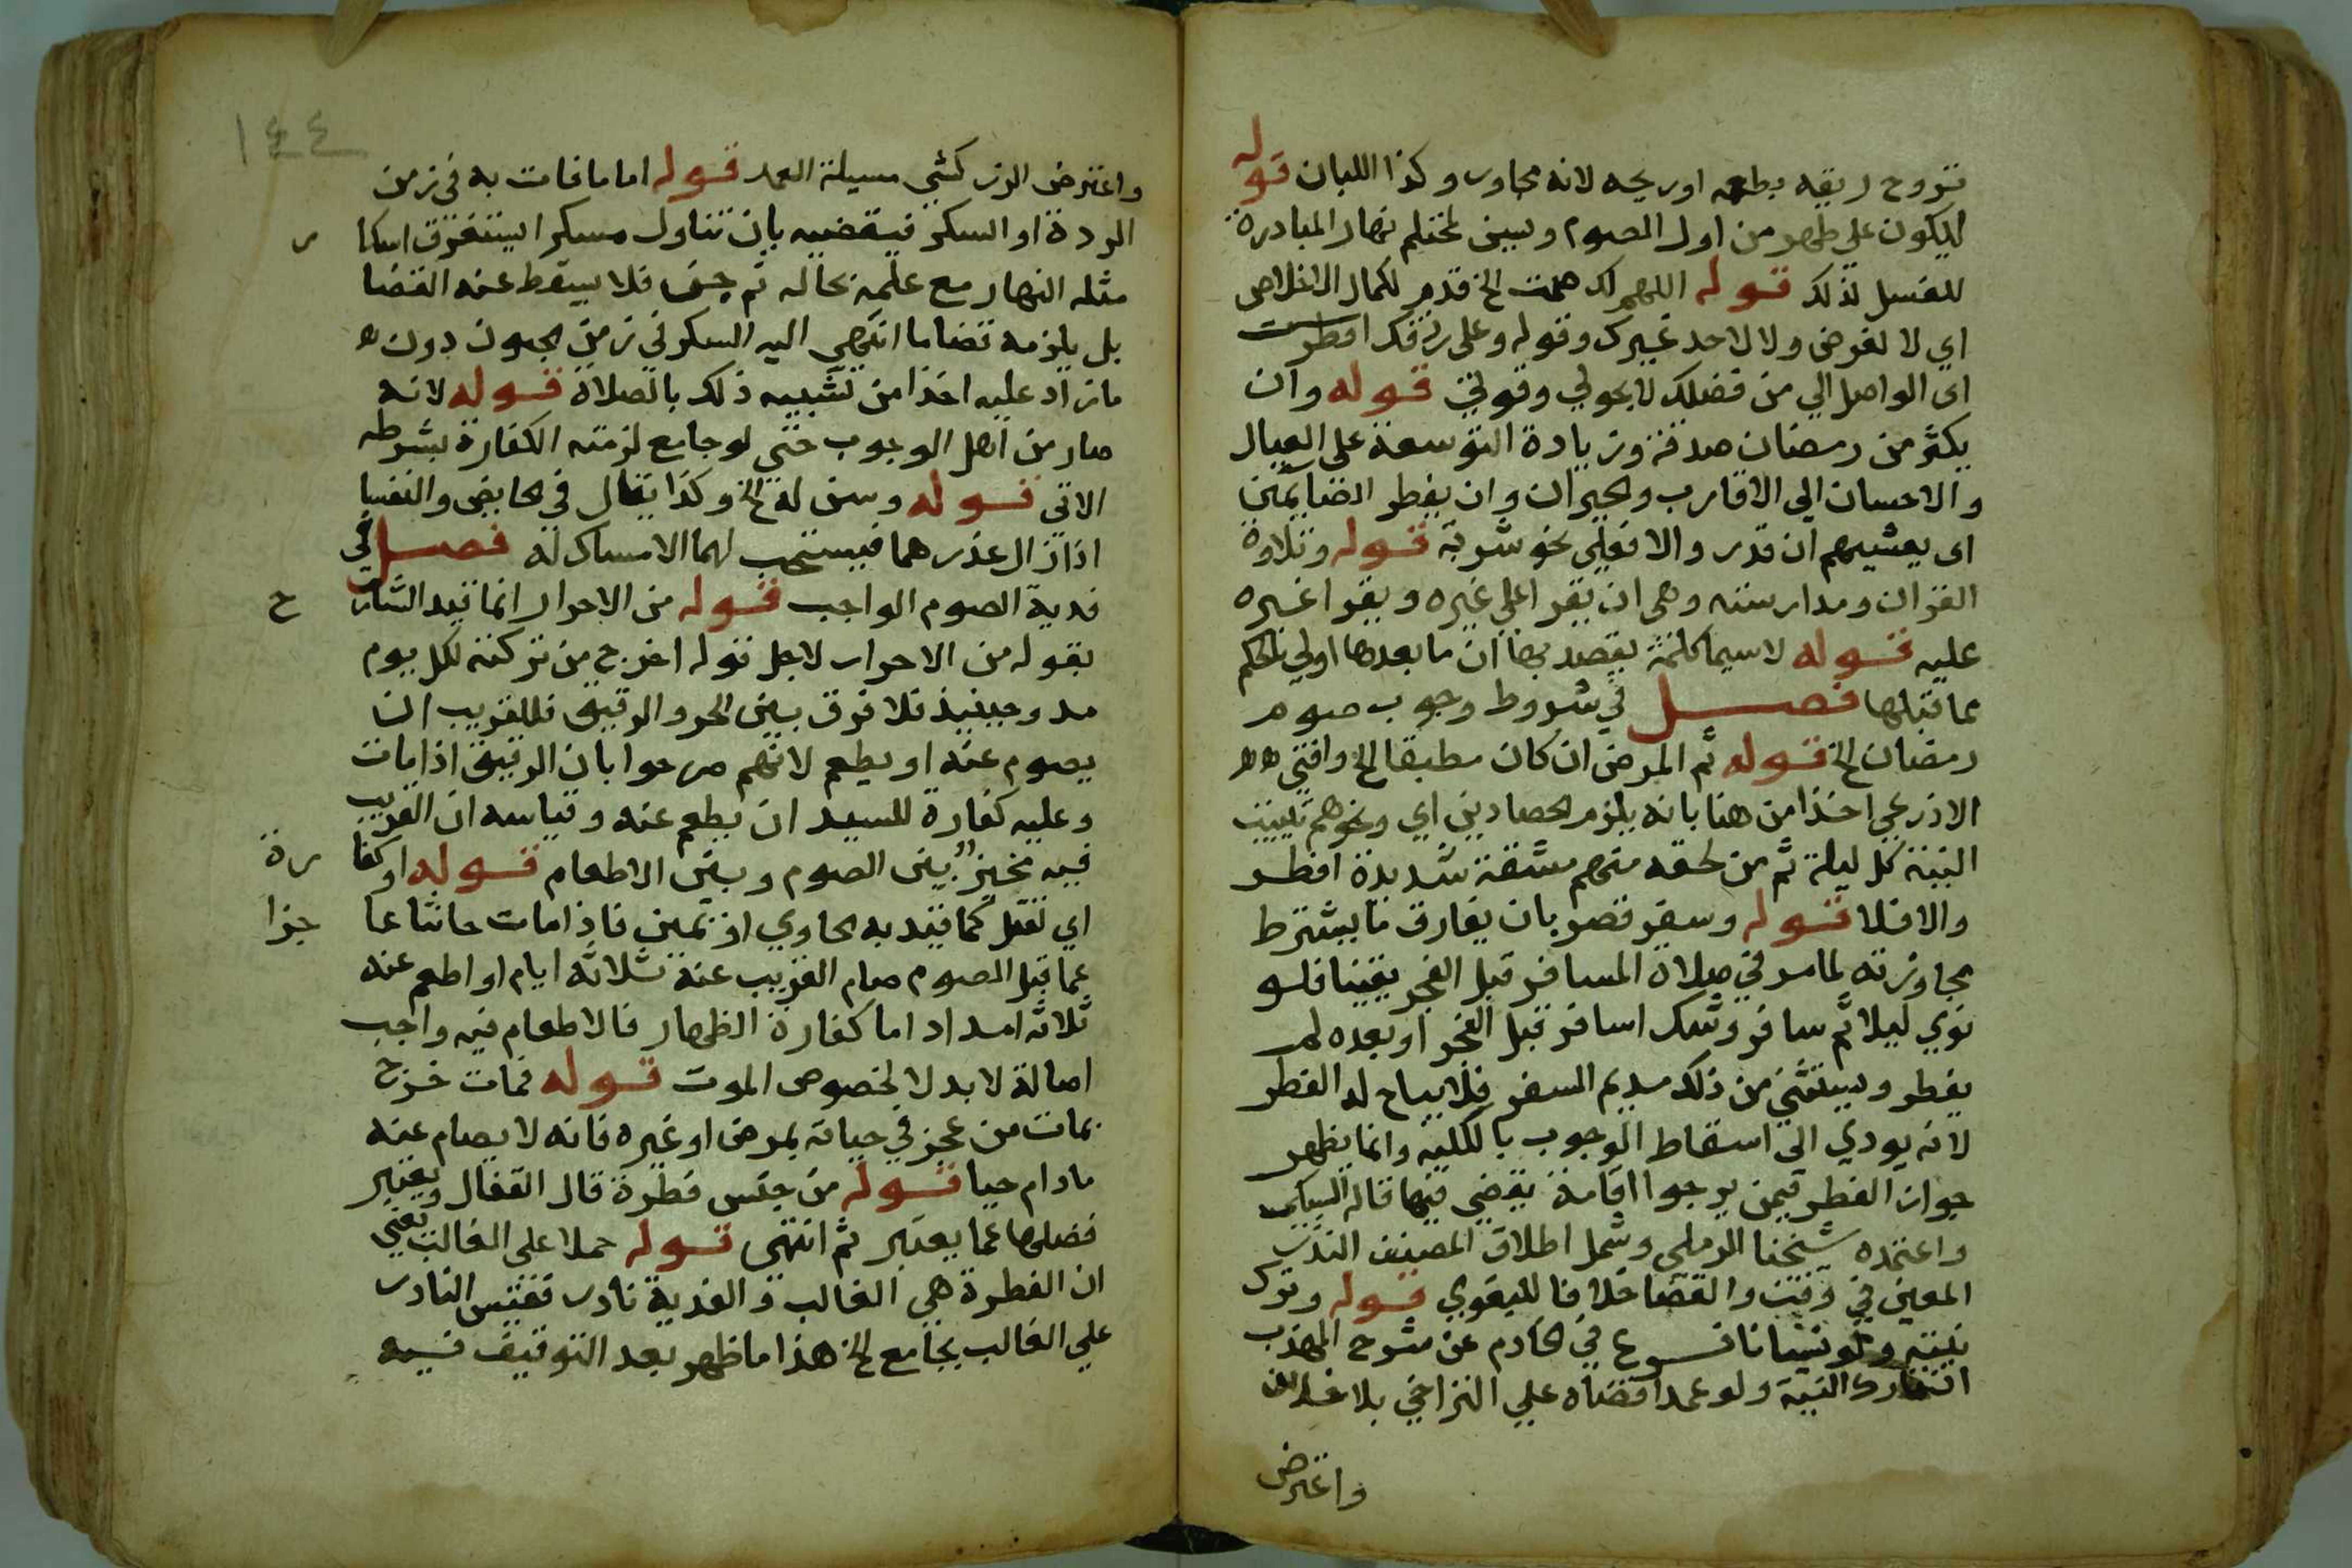 تروح ريقه بطعمه او ريحه لانه مجاور وكذا اللبان قوله
ليكون علي طهر من اول الصوم ويسن لمحتلم نهارا المبادرة
للغسل لذلك قوله اللهم لك صمت الخ قدم لكمال الاخلاص
اي لا لغرض ولا لاحد غيرك وقوله وعلى رزقك افطرت
اى الواصل الي من فضلك لا بحولي وقوتي قوله وان
يكثر من رمضان صدقة وزيادة التوسعة على العيال
والاحسان الي الاقارب والجيران وان يفطر الصايمين
اى يعشيهم ان قدر والا فعلي نحو شربة قوله وتلاوة
القران ومدارسته وهى ان يقرا علي غيره ويقرا غيره
عليه قوله لاسيما كلمة يقصد بها ان ما بعدها اولي بالحكم
مما قبلها فصل في شروط وجوب صوم
رمضان الخ قوله ثم المرض ان كان مطبقا الخ وافتي
الاذرعي اخذا من هنا بانه يلزم الحصادين اي ونحوهم تبييت
النية كل ليلة ثم من لحقه منهم مشقة شديدة افطر
والا فلا قوله وسفر قصر بان يفارق ما يشترط
مجاوزته لما مر في صلاة المسافر قبل الفجر يقينا فلو
نوي ليلا ثم سافر وشك اسافر قبل الفجر او بعده لم
يفطر ويستثني من ذلك مديم السفر فلا يباح له الفطر
لانه يودي الي اسقاط الوجوب بالكلية وانما يظهر
جواز الفطر فيمن يرجوا اقامة يقضي فيها قاله السبكي
واعتمده شيخنا الرملي وشمل اطلاق المصنف النذر
المعين في وقت والقضا خلافا للبغوي قوله وترك
نيته ولو نسيانا فرع في الخادم عن شرح المهذب
ان تارك النية ولو عمدا قضاه علي التراخي بلا خلاف
واعترض
١٤٤
واعترض الزركشي مسيلة العمد قوله اما ما فات به في زمن
الردة او السكر فيقضيه بان تناول مسكرا ليستغرق اسكا ر
مثله النهار مع علمه بحاله ثم جن فلا يسقط عنه القضا
بل يلزمه قضا ما انتهي اليه السكر في زمن الجنون دون
ما زاد عليه اخذا من تشبيه ذلك بالصلاة قوله لانه
صار من اهل الوجوب حتي لو جامع لزمته الكفارة بشرطه
الاتي قوله وسن له الخ وكذا يقال في الحايض والنفسا
اذا زال عذرهما فيستحب لهما الامساك له فصل في
فدية الصوم الواجب قوله من الاحرار انما قيد الشار ح
بقوله من الاحرار لاجل قوله اخرج من تركته لكل يوم
مد وحينيذ فلا فرق بين الحر والرقيق فللقريب ان
يصوم عنه او يطعم لانهم صرحوا بان الرقيق اذا مات
وعليه كفارة للسيد ان يطعم عنه وقياسه ان القريب
فيه مخير بين الصوم وبين الاطعام قوله او كفا رة
اي لقتل كما قيد به الحاوي او يمين فاذا مات حانثا عا جزا
عما قبل الصوم صام القريب عنه ثلاثه ايام او اطعم عنه
ثلاثه امداد اما كفارة الظهار فالاطعام فيه واجب
اصالة لا بدلا لخصوص الموت قوله فمات خرج
بمات من عجز في حياته بمرض او غيره فانه لا يصام عنه
مادام حيا قوله من جنس فطرة قال القفال ويعتبر
فضلها عما يعتبر ثم انتهى قوله حملا على الغالب يعني
ان الفطرة هي الغالب والفدية نادر فقيس النادر
علي الغالب بجامع الخ هذا ما ظهر بعد التوقيف فيه